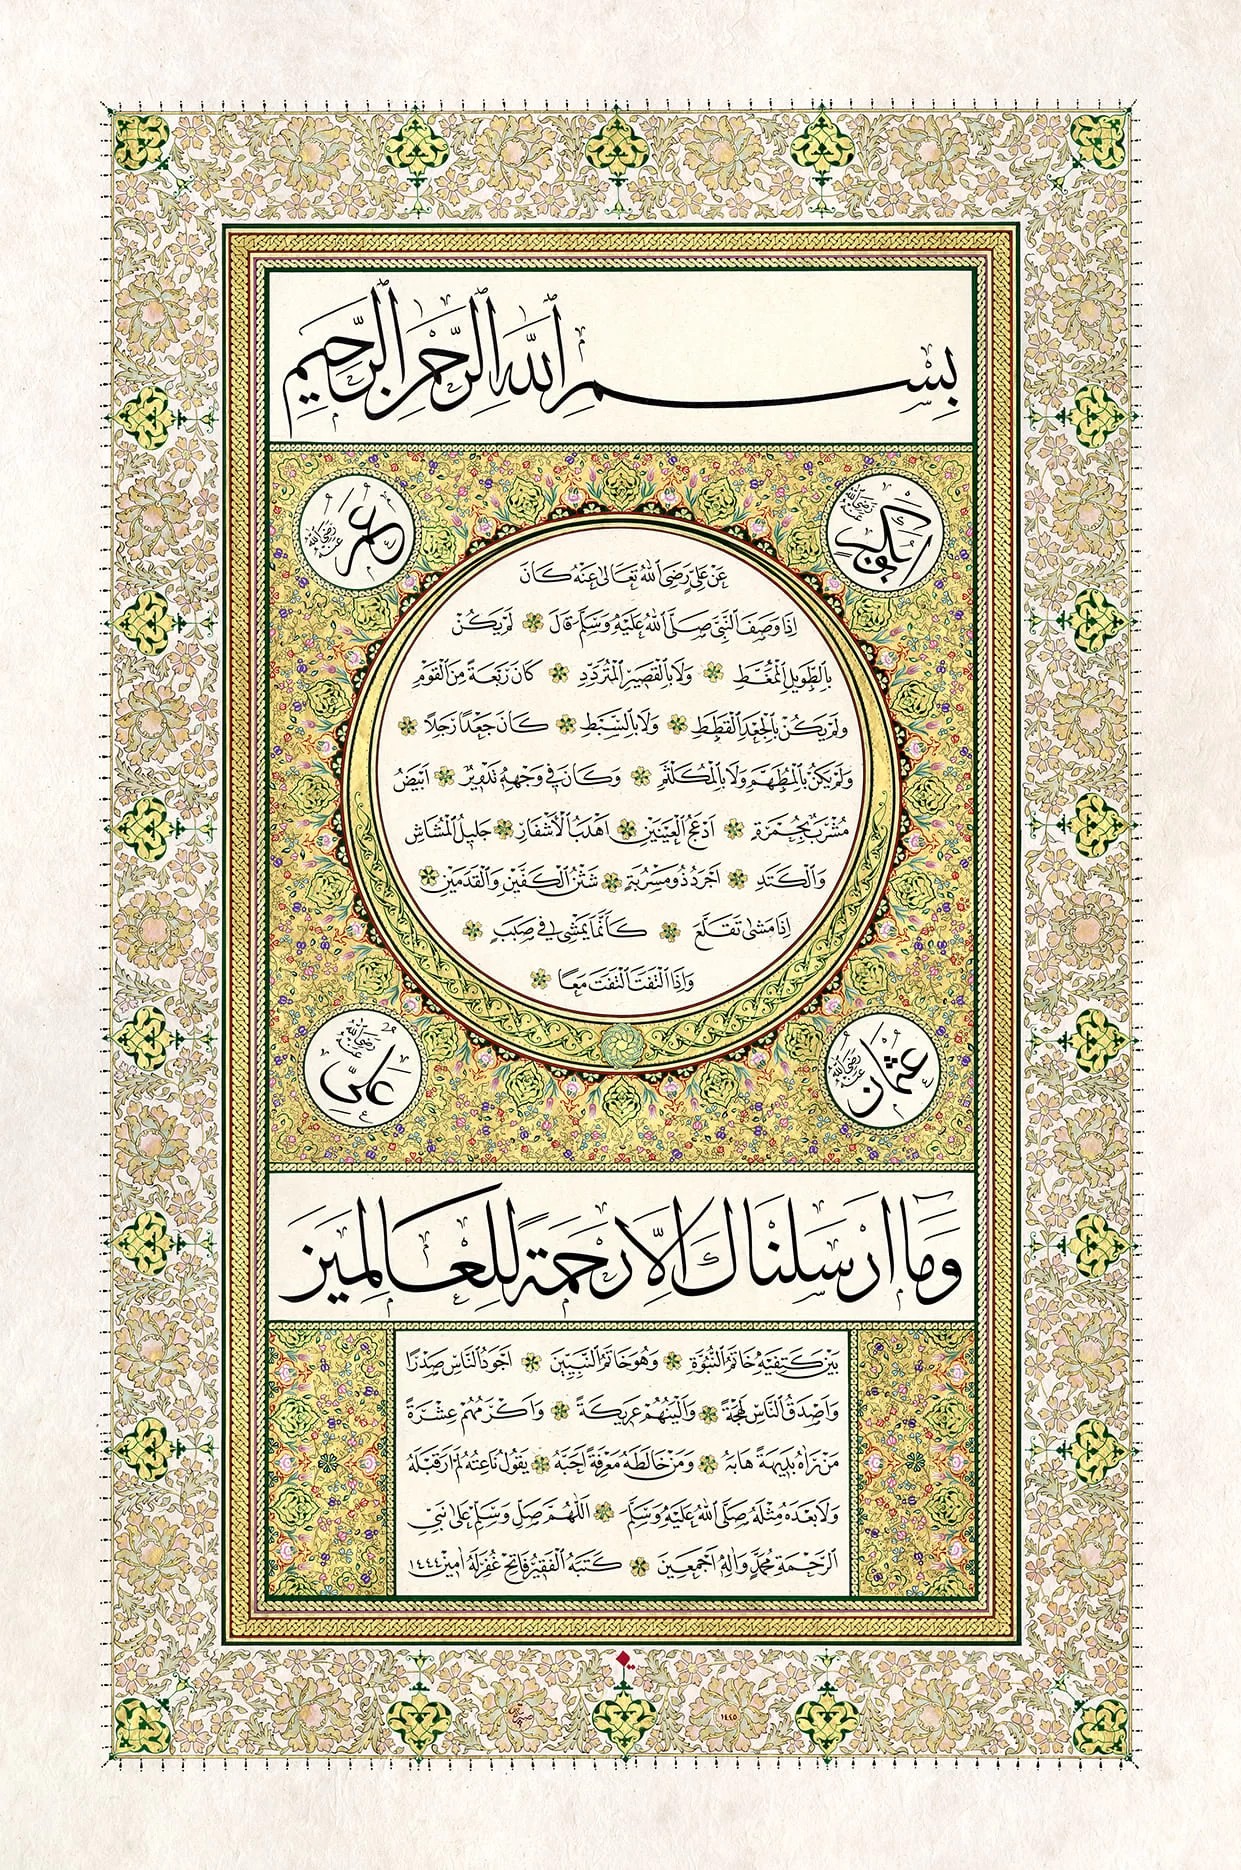 بِسْمِ اللّٰهِ الرَّحْمٰنِ الرَّحِيمِ
ابوبكر رضي الله عنه
عمر رضي الله عنه
عَنْ عَلِيٍّ رَضِيَ اللّٰهُ تَعَالٰى عَنْهُ كَانَ
اِذَا وَصَفَ النَّبِيَّ صَلَّى اللّٰهُ عَلَيْهِ وَسَلَّمَ قَالَ لَمْ يَكُنْ
بِالطَّوِيلِ الْمُمَّغَطِ وَلَا بِالْقَصِيرِ الْمُتَرَدِّدِ كَانَ رَبْعَةً مِنَ الْقَوْمِ
وَلَمْ يَكُنْ بِالْجَعْدِ الْقَطَطِ وَلَا بِالسَّبْطِ كَانَ جَعْدًا رَجِلًا
وَلَمْ يَكُنْ بِالْمُطَهَّمِ وَلَا بِالْمُكَلْثَمِ وَكَانَ فِي وَجْهِهِ تَدْوِيرٌ اَبْيَضُ
مُشْرَبٌ بِحُمْرَةٍ اَدْعَجُ الْعَيْنَيْنِ اَهْدَبُ الْاَشْفَارِ جَلِيلُ الْمُشَاشِ
وَالْكَتَدِ اَجْرَدُ ذُو مَسْرُبَةٍ شَثْنُ الْكَفَّيْنِ وَالْقَدَمَيْنِ
اِذَا مَشٰى تَقَلَّعَ كَاَنَّمَا يَمْشِي فِي صَبَبٍ
وَاِذَا الْتَفَتَ الْتَفَتَ مَعًا
عثمان رضي الله عنه
علي رضي الله عنه
وَمَا اَرْسَلْنَاكَ اِلَّا رَحْمَةً لِلْعَالَمِينَ
بَيْنَ كَتِفَيْهِ خَاتَمُ النُّبُوَّةِ وَهُوَ خَاتَمُ النَّبِيِّينَ اَجْوَدُ النَّاسِ صَدْرًا
وَاَصْدَقُ النَّاسِ لَهْجَةً وَاَلْيَنُهُمْ عَرِيكَةً وَاَكْرَمُهُمْ عِشْرَةً
مَنْ رَاٰهُ بَدِيهَةً هَابَهُ وَمَنْ خَالَطَهُ مَعْرِفَةً اَحَبَّهُ يَقُولُ نَاعِتُهُ لَمْ اَرَ قَبْلَهُ
وَلَا بَعْدَهُ مِثْلَهُ صَلَّى اللّٰهُ عَلَيْهِ وَسَلَّمَ اَللّٰهُمَّ صَلِّ وَسَلِّمْ عَلٰى نَبِيِّ
الرَّحْمَةِ مُحَمَّدٍ وَاٰلِهِ اَجْمَعِينَ كَتَبَهُ الْفَقِيرُ فَاتِحْ غُفِرَلَهُ اٰمِين ١٤٤٤
١٤٤٥